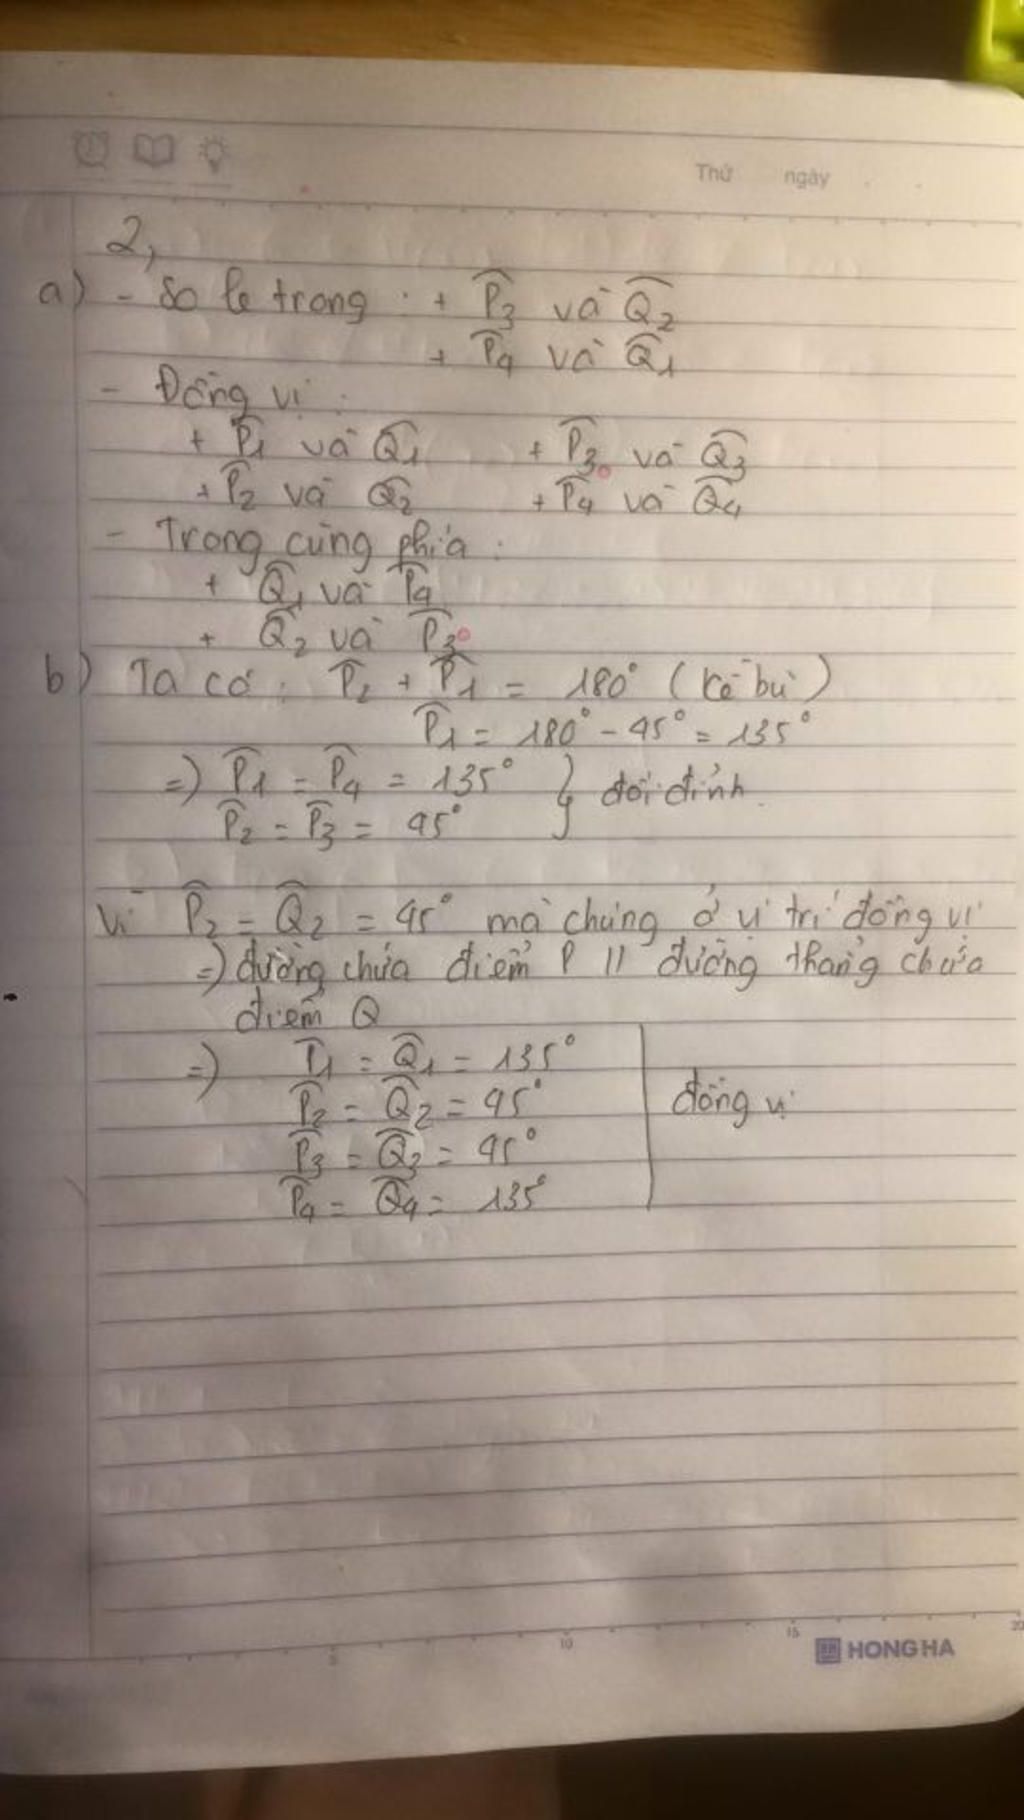 Thứ ngày
2,
a) - So le trong : + P̂3 và Q̂2
+ P̂4 và Q̂1
- Đồng vị :
+ P̂1 và Q̂1 + P̂3 và Q̂3
+ P̂2 và Q̂2 + P̂4 và Q̂4
- Trong cùng phía :
+ Q̂1 và P̂4
+ Q̂2 và P̂3
b) Ta có : P̂2 + P̂1 = 180° (kề bù)
P̂1 = 180° - 45° = 135°
=) P̂1 = P̂4 = 135° } đối đỉnh
P̂2 = P̂3 = 45°
Vì P̂2 = Q̂2 = 45° mà chúng ở vị trí đồng vị
=) đường chứa điểm P // đường thẳng chứa
điểm Q
=) P̂1 = Q̂1 = 135°
P̂2 = Q̂2 = 45° đồng vị
P̂3 = Q̂3 = 45°
P̂4 = Q̂4 = 135°
5 10 15 20
HONG HA